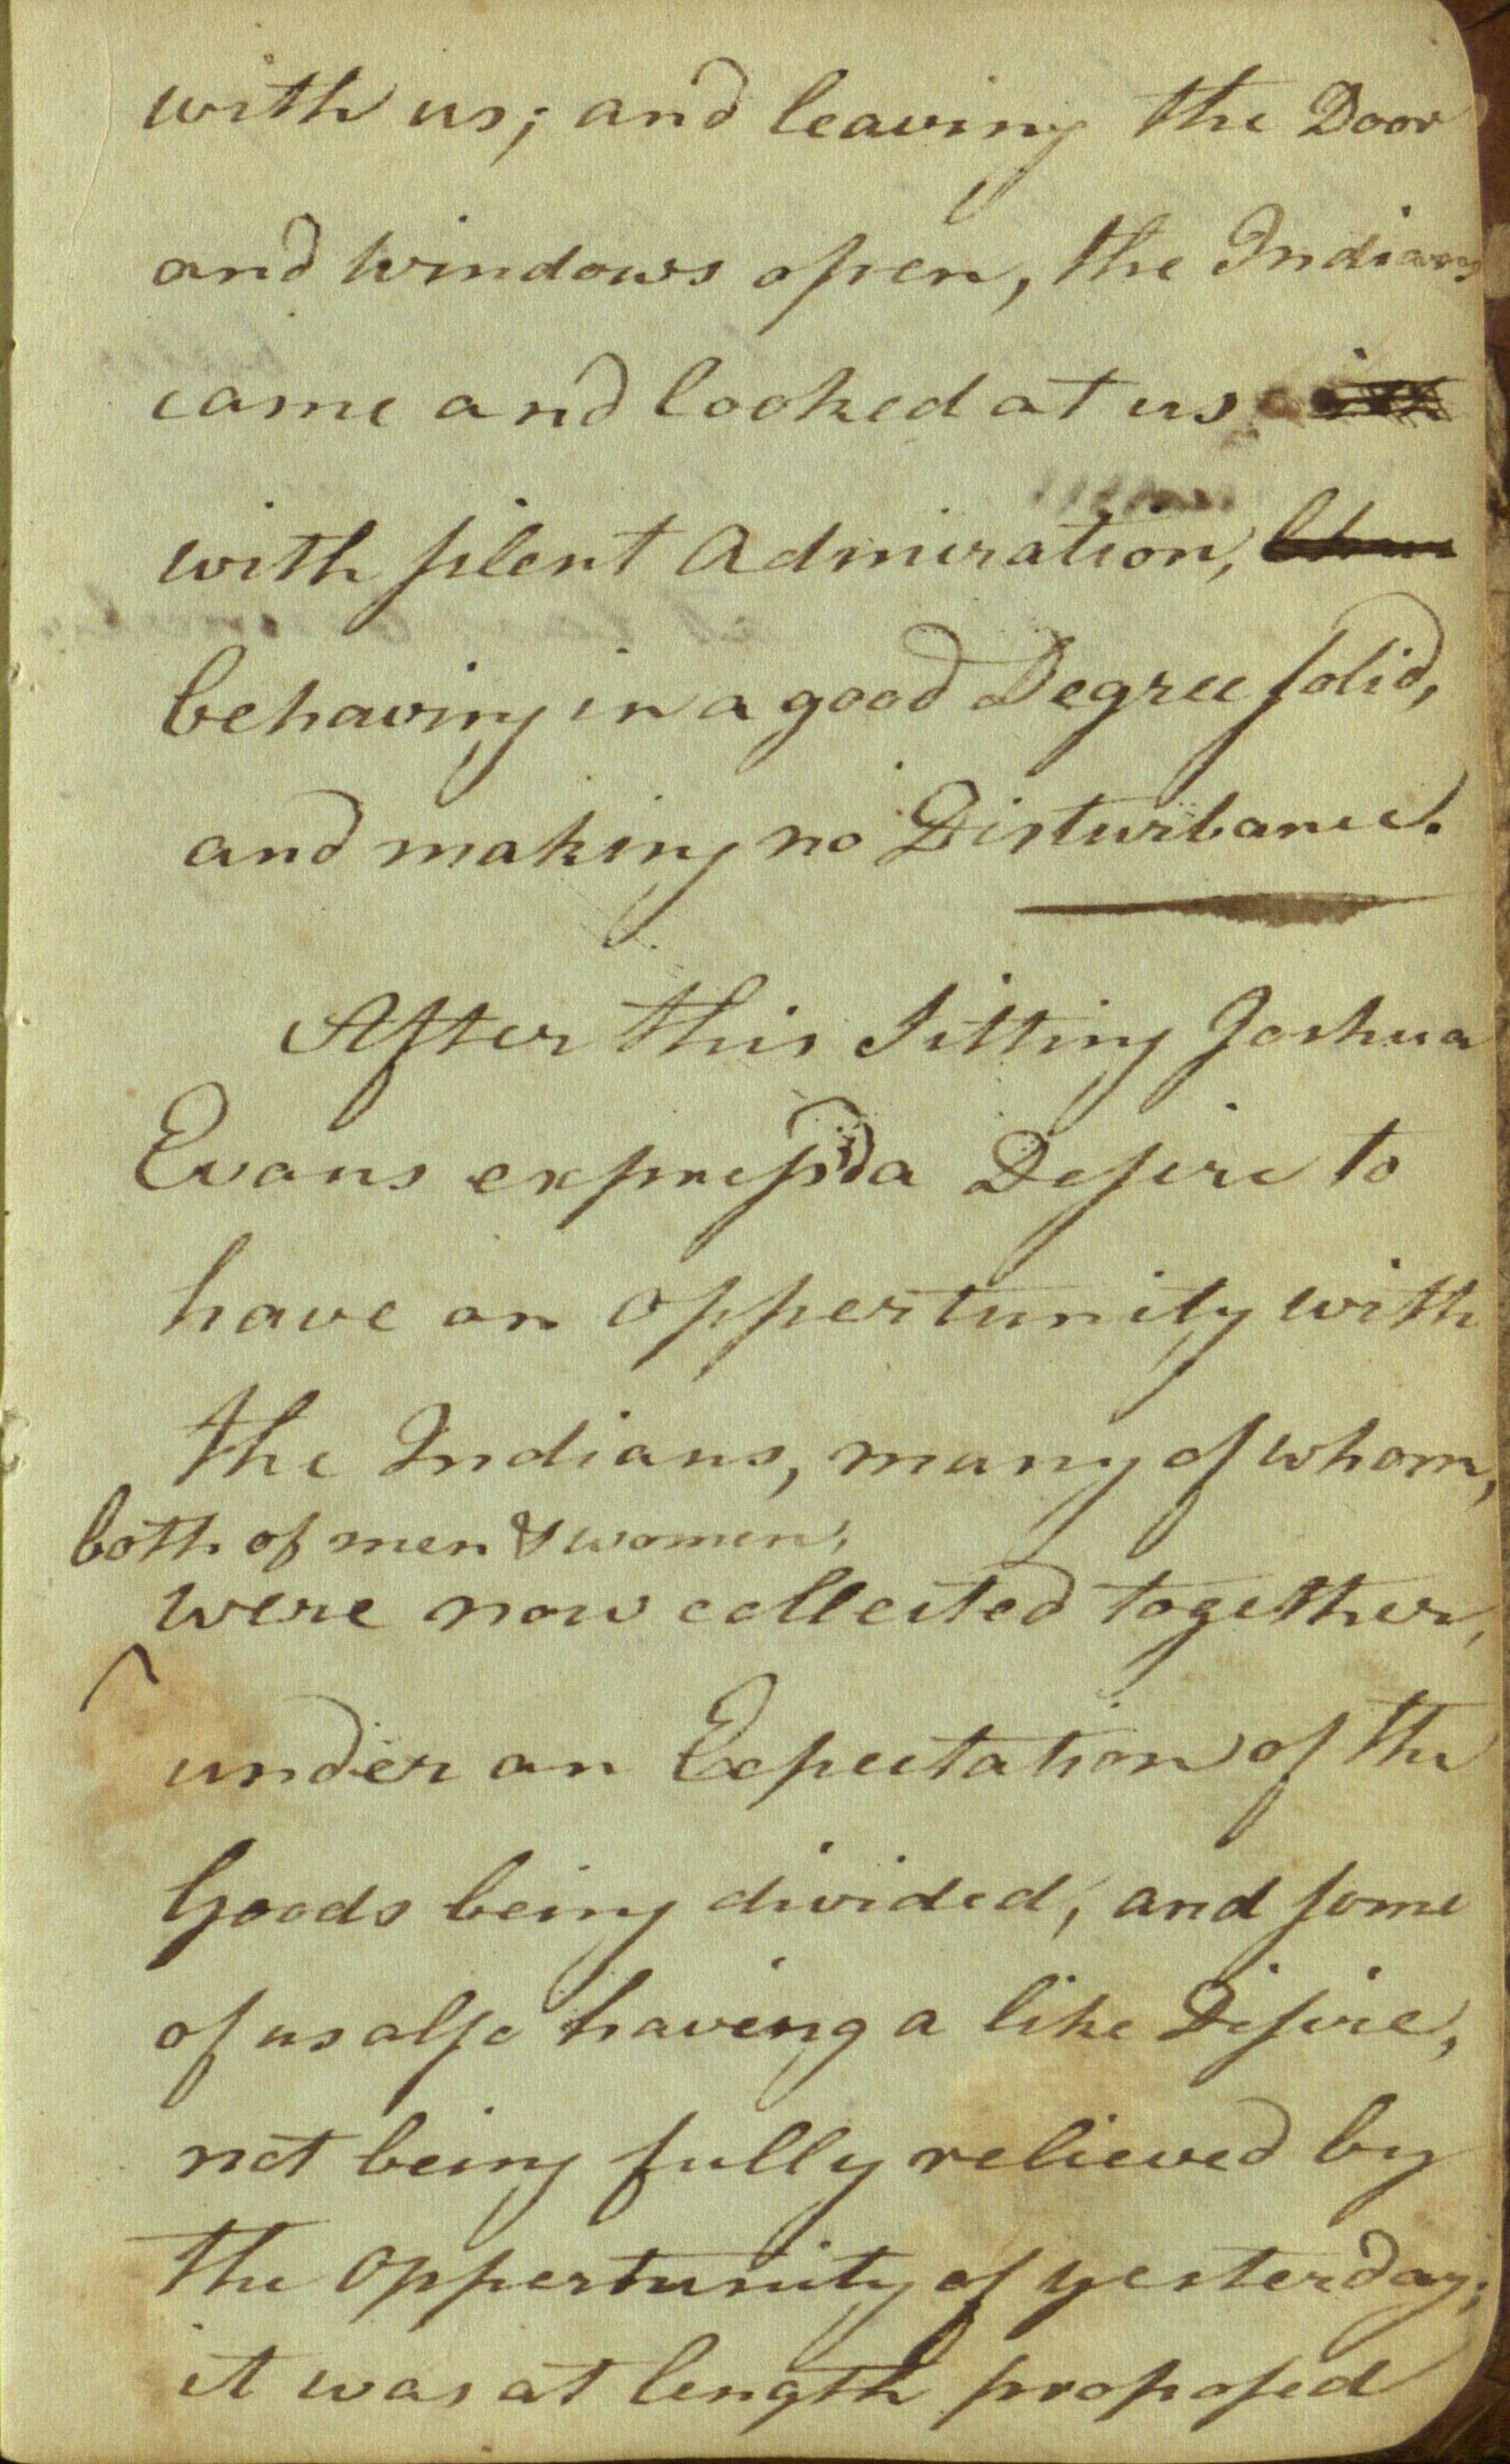 with us; and leaving the Door
and windows open, the Indians
came and looked at us
with silent Admiration,
behaving in a good Degree solid,
and making no Disturbance.
After this Sitting Joshua
Evans express'd a Desire to
have an oppertunity with
the Indians, many of whom,
both of men & women,
were now collected together,
under an Expectation of the
Goods being divided, and some
of us also having a like Desire,
not being fully relieved by
the oppertunity of yesterday;
it was at length proposed